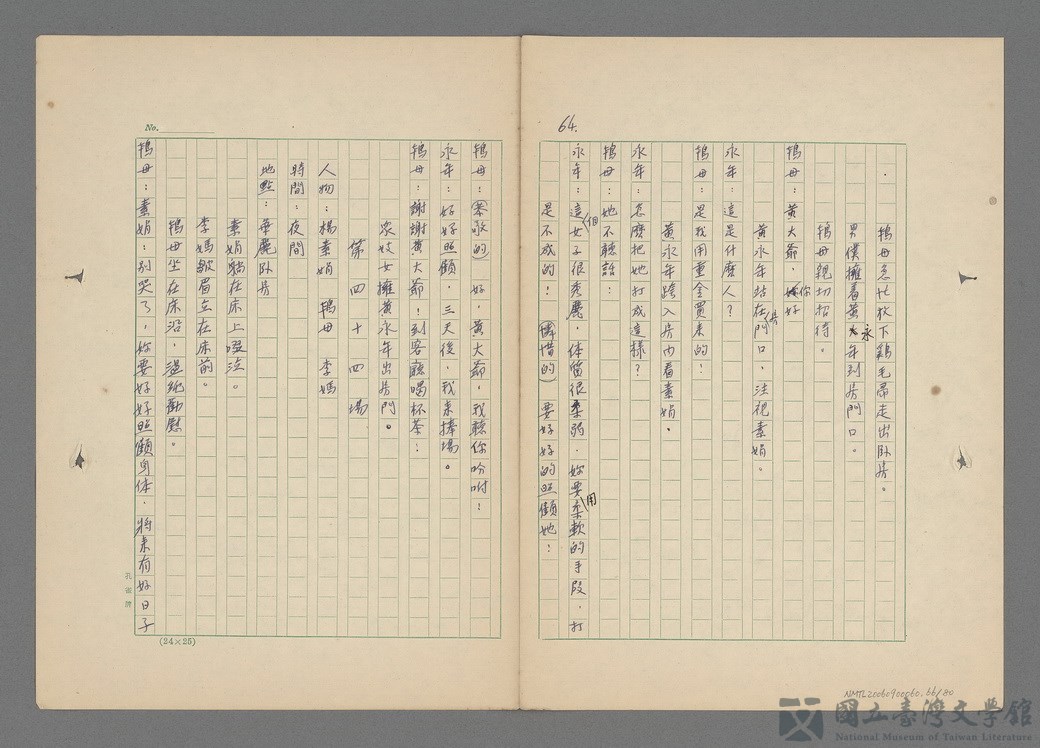 64.
鴇母急忙放下鷄毛帚走出臥房。
男僕擁着黃永年到房門口。
鴇母親切招待。
鴇母：黃大爺，你好
黃永年站在房門口，注視素娟。
永年：這是什麼人？
鴇母：是我用重金買来的！
黃永年跨入房內看素娟。
永年：怎麼把她打成這樣？
鴇母：她不聽話：
永年：這個女子很秀麗，体質很柔弱．妳要用柔軟的手段．打
是不成的！（憐惜的）要好好的照顧她：
No.
鴇母：（柔聲的）好，黃大爺，我聽你吩咐！
永年：好好照顧，三天後，我来捧場。
鴇母：謝謝黃大爺！到客廳喝杯茶：
眾妓女擁黃永年出房門。
第四十四場
人物：楊素娟 鴇母 李媽
時間：夜間
地點：華麗臥房
素娟躺在床上啜泣。
李媽皺眉立在床前。
鴇母坐在床沿，溫純勸慰。
鴇母：素娟：別哭了，你要好好照顧身体．將来有好日子
孔雀牌
(24×25)
NMTL20060900060.66/80
國立臺灣文學館
National Museum of Taiwan Literature